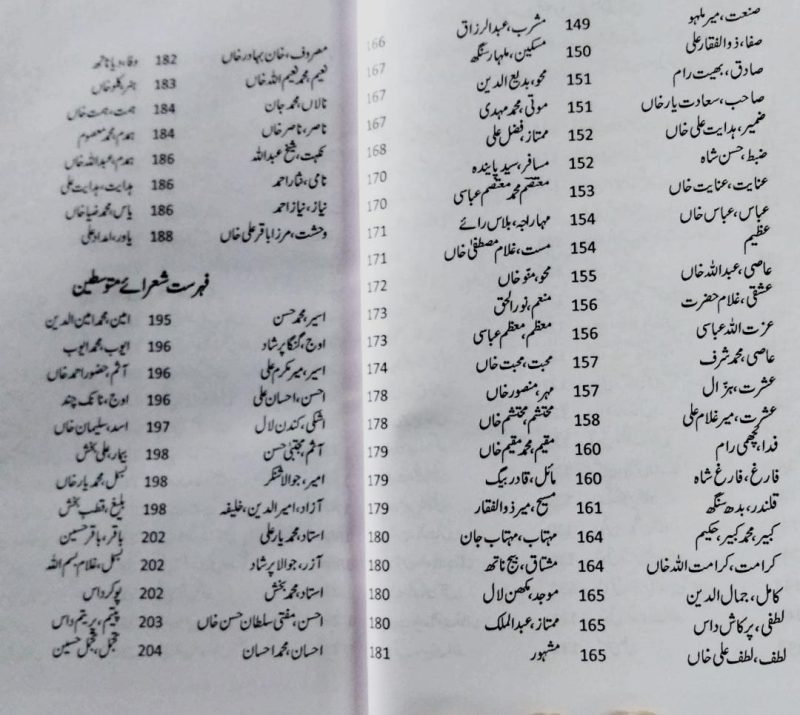 صنعت، میر ملہو 149 مشرب، عبدالرزاق 166
صفا، ذوالفقار علی 150 مسکین، ملہار سنگھ 167
صادق، بھیت رام 151 محو، بدیع الدین 167
صاحب، سعادت یار خاں 151 موتی، محمد مہدی 167
ضمیر، ہدایت علی خاں 152 ممتاز، فضل علی 168
ضبط، حسن شاہ 152 مسافر، سید پایندہ 170
عنایت، عنایت خاں 153 معتصم محمد معتصم عباسی 170
عباس، عباس خاں 154 مہاراجہ، بلاس رائے 171
عظیم 154 مست، غلام مصطفیٰ خاں 171
عاصی، عبداللہ خاں 155 محو، منو خاں 172
عشقی، غلام حضرت 156 منعم، نور الحق 173
عزت اللہ عباسی 156 معظم، معظم عباسی 173
عاصی، محمد شرف 157 محبت، محبت خاں 174
عشرت، ہزال 157 مہر، منصور خاں 178
عشرت، میر غلام علی 158 محتشم، محتشم خاں 178
فدا، لچھمی رام 160 مقیم، محمد مقیم خاں 179
فارغ، فارغ شاہ 160 مائل، قادر بیگ 179
قلندر، بدھ سنگھ 161 مسیح، میر ذوالفقار 179
کبیر، محمد کبیر، حکیم 164 مہتاب، مہتاب جان 180
کرامت، کرامت اللہ خاں 164 مشتاق، بیج ناتھ 180
کامل، جمال الدین 165 موجد، مکھن لال 180
لطفی، پرکاش داس 165 ممتاز، عبدالملک 180
لطف، لطف علی خاں 165 مشہور 181
معروف، خان بہادر خاں 182 وفا، دیا ناتھ
نعیم، محمد نعیم اللہ خاں 183 ہنر، کلو خاں
نالاں، محمد جان 184 ہمت، ہمت خاں
ناصر، ناصر خاں 184 ہمدم، محمد معصوم
نکہت، شیخ عبداللہ 186 ہمدم، عبداللہ خاں
نامی، نثار احمد 186 ہدایت، ہدایت علی
نیاز، نیاز احمد 186 یاس، محمد ضیا خاں
وحشت، مرزا باقر علی خاں 188 یاور، امداد علی
فہرست شعرائے متوسطین
اسیر، محمد حسن 195 امین، محمد امین الدین
اوج، گنگا پرشاد 196 ایوب، محمد ایوب
اسیر، میر مکرم علی 196 آثم، حضور احمد خاں
احسن، احسان علی 196 اوج، نانک چند
اشکی، کندن لال 197 اسد، سلیمان خاں
آثم، مجتبیٰ حسن 198 بیمار، علی بخش
امیر، جوالا شنکر 198 بسمل، محمد یار خاں
آزاد، امیر الدین، خلیفہ 198 بلیغ، قطب بخش
استاد، محمد یار علی 202 باقر، باقر حسین
آزر، جوالا پرشاد 202 بسمل، غلام بسم اللہ
استاد، محمد بخش 202 پوکر داس
احسن، مفتی سلطان حسن خاں 203 پیتیم، پریتم داس
احسان، محمد احسان 204 تجمل، تجمل حسین